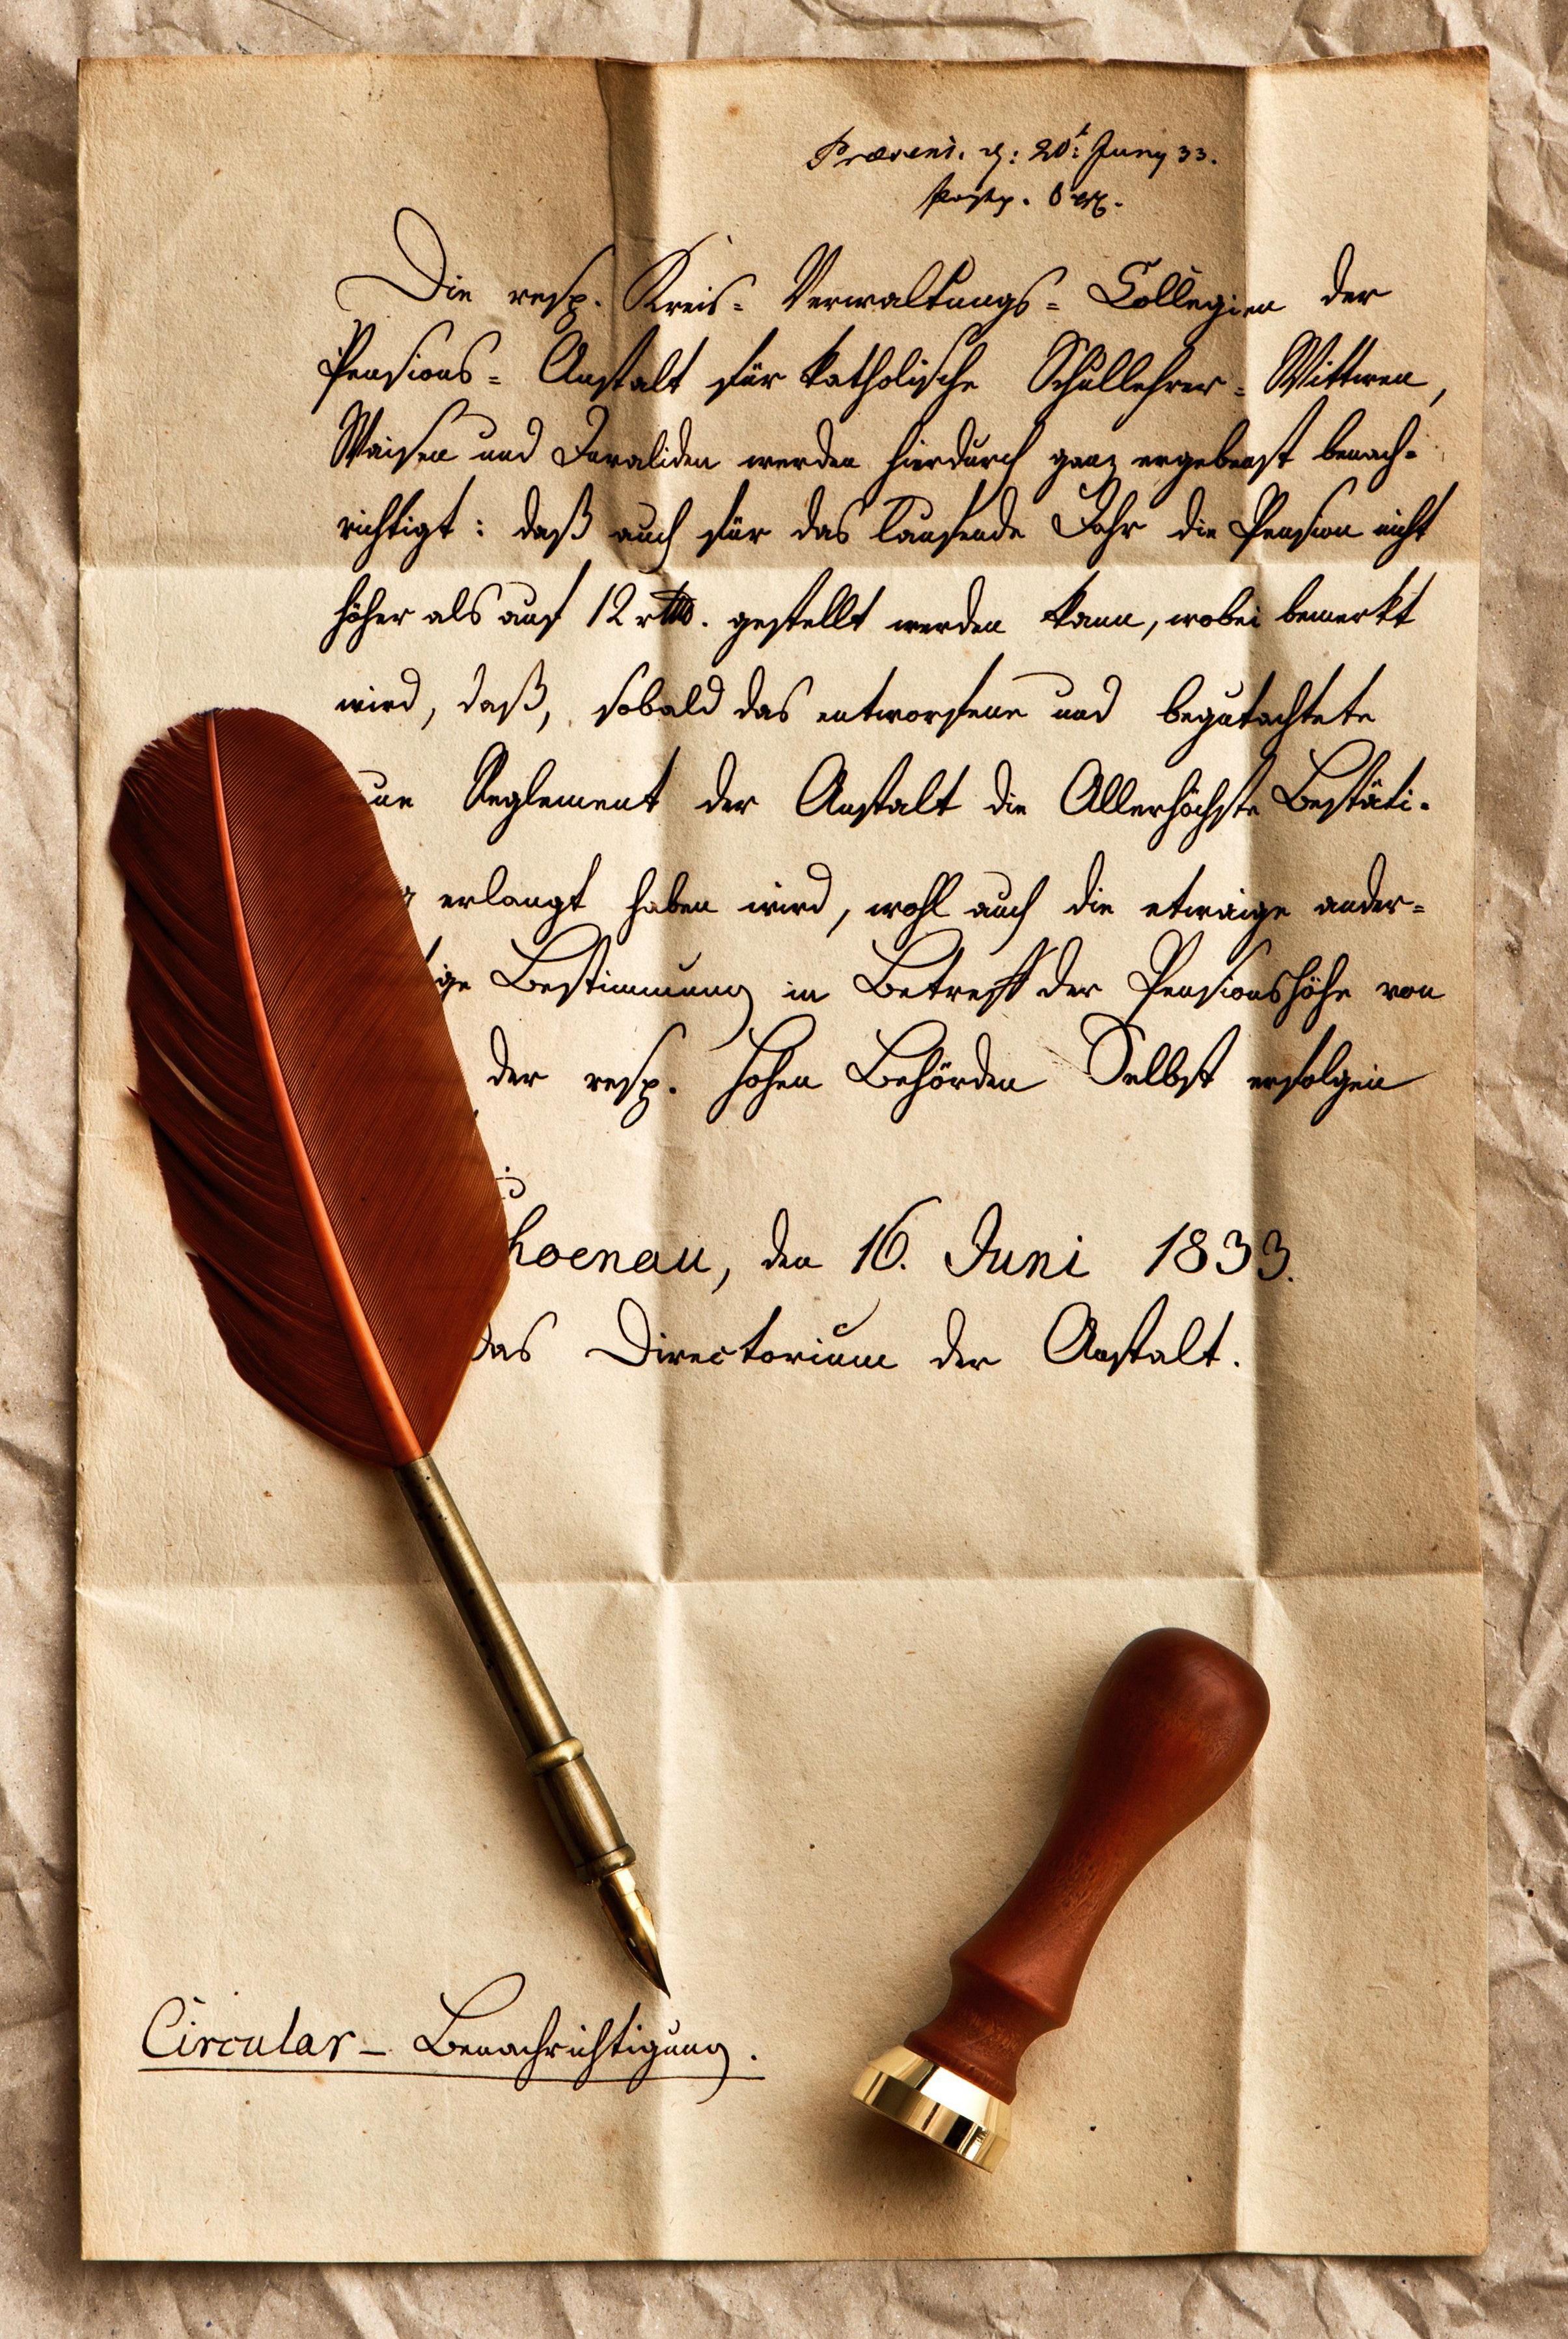 Præsent. d: 20t Juny 33.
Die resp. Kreis= Verwaltungs= Collegien der
Pensions= Anstalt für katholische Schullehrer= Wittwen,
Waisen und Invaliden werden hierdurch ganz ergebenst benach=
richtigt: daß auch für das laufende Jahr die Pension nicht
höher als auf 12 rthl. gestellt werden kann, wobei bemerkt
wird, daß, sobald das entworfene und begutachtete
Reglement der Anstalt die Allerhöchste Bestäti=
erlangt haben wird, wohl auch die etwaige ander=
ige Bestimmung in Betreff der Pensionshöhe von
der resp. hohen Behörden Selbst erfolgen
hoenau, den 16. Juni 1833.
Das Directorium der Anstalt.
Circular- Benachrichtigung.